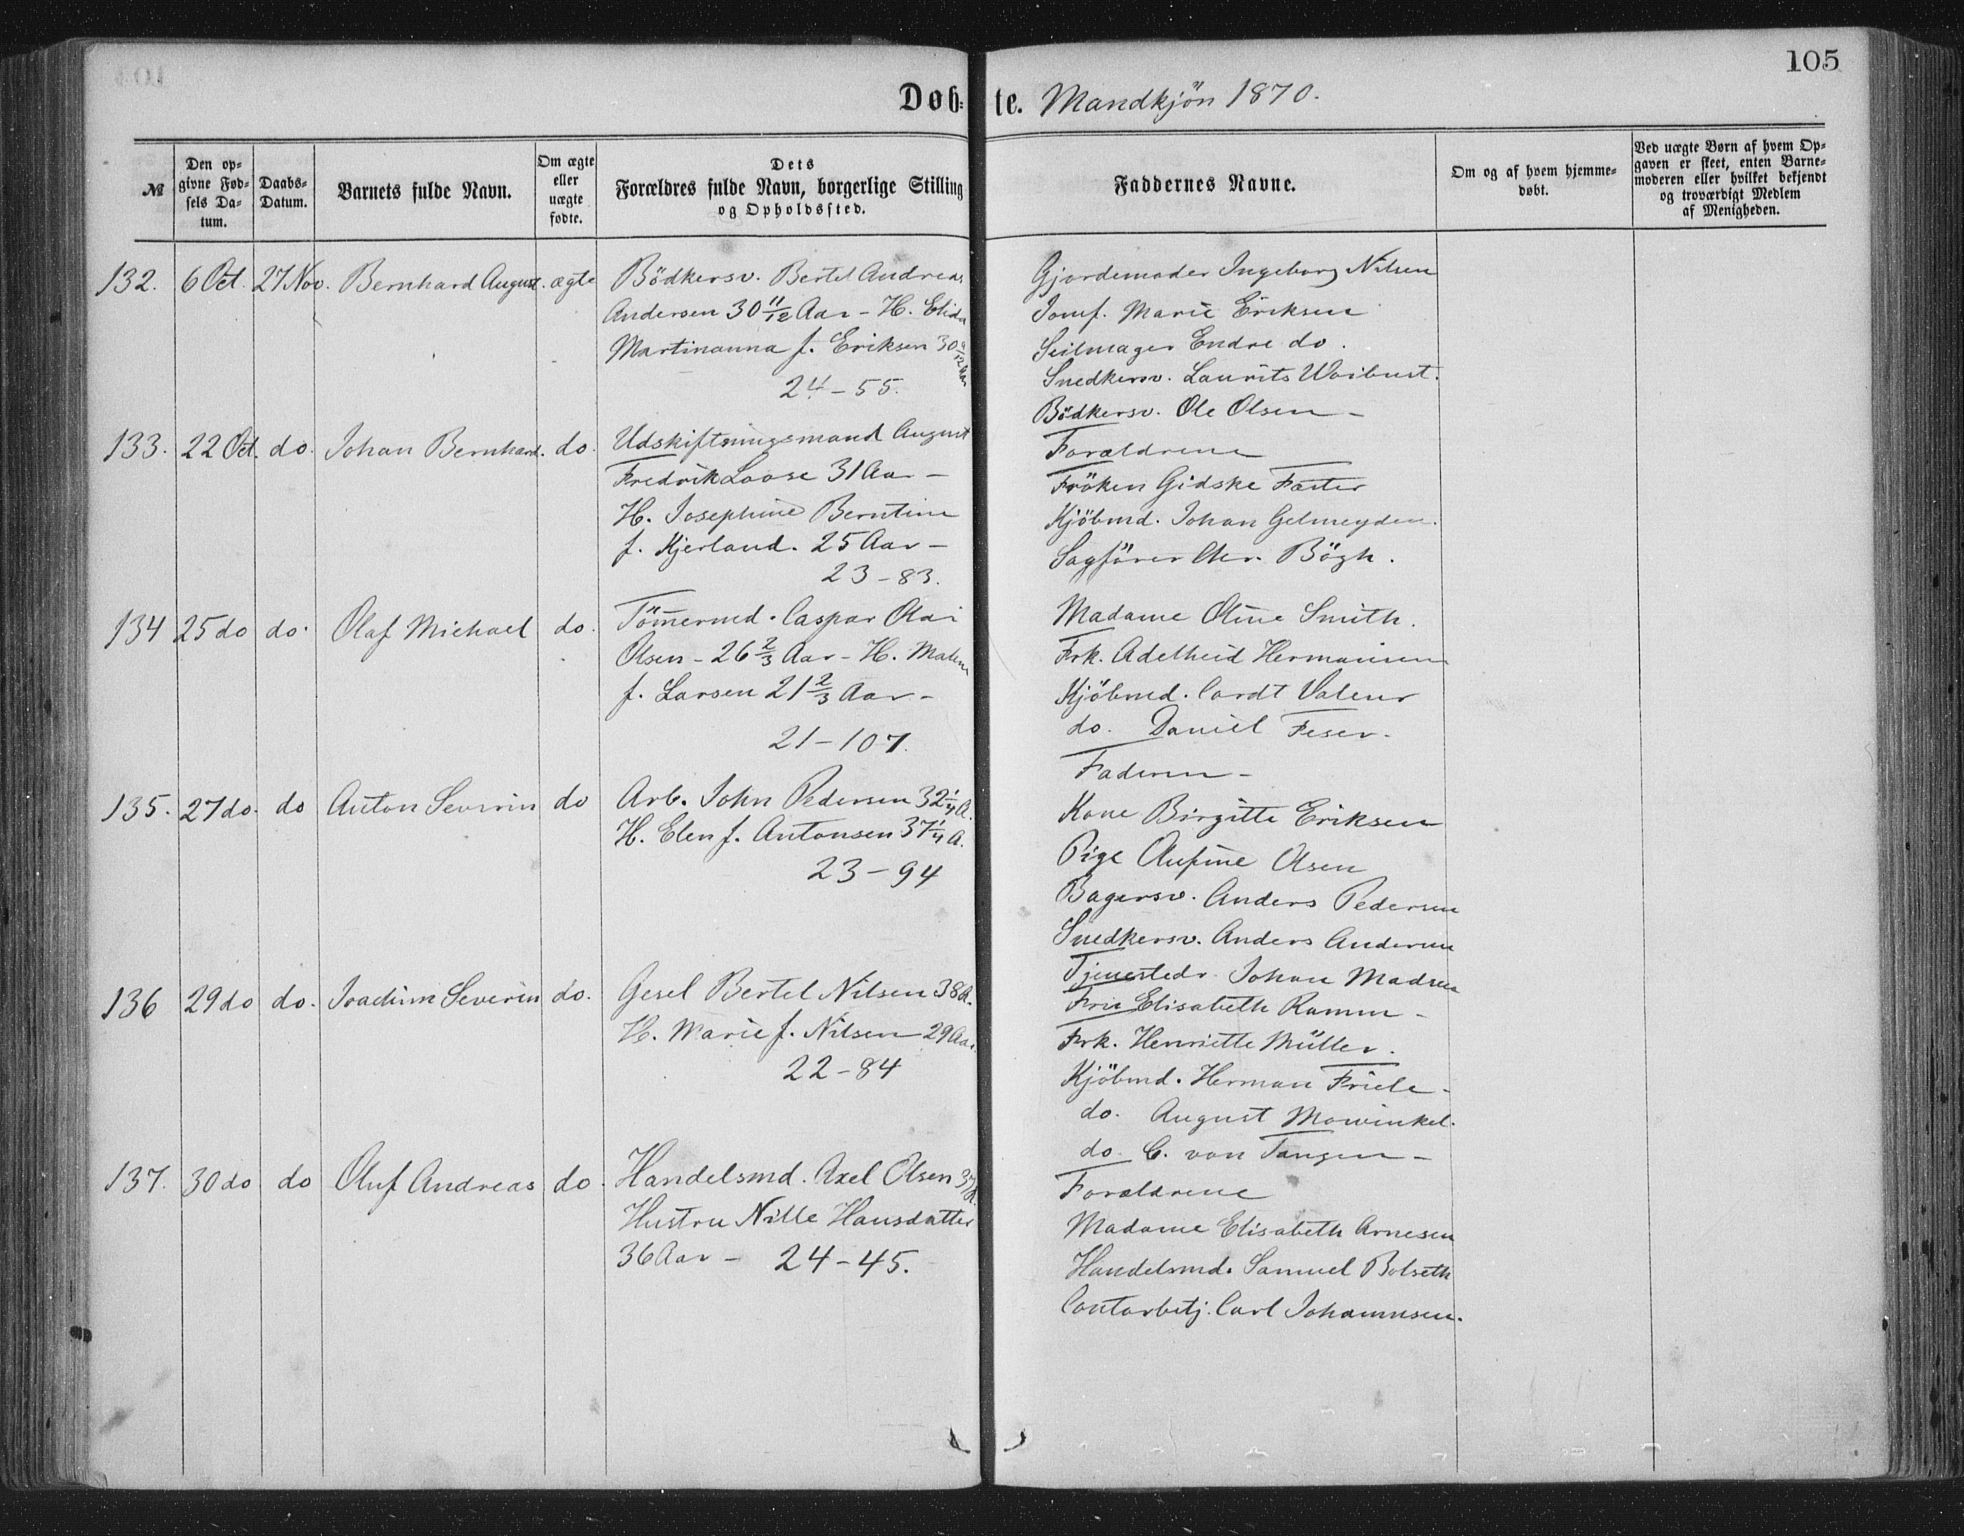 105
Døb-te. Mandkjön 1870.
№
Den opgivne Fødsels Datum.
Daabs-Datum.
Barnets fulde Navn.
Om ægte eller uægte fødte.
Dets Forældres fulde Navn, borgerlige Stilling og Opholdssted.
Faddernes Navne.
Om og af hvem hjemmedøbt.
Ved uægte Børn af hvem Opgaven er skeet, enten Barnemoderen eller hvilket bekjendt og troværdigt Medlem af Menigheden.
132. 6 Oct. 27 Nov. Bernhard August. ægte
Bödkersv. Bertel Andreas
Andersen 30 11/12 Aar - H. Elida
Martinanna f. Eriksen 30
24-55.
Gjordemoder Ingeborg Nilsen
Jomf. Marie Eriksen
Seilmager Endre do.
Snedkersv. Laurits
Bödkersv. Ole Olsen -
133. 22 Oct. do. Johan Bernhard. do.
Udskiftningsmand August
Fredrik Loose 31 Aar -
H. Josephine Berntine
f. Kjerland. 25 Aar -
23-83.
Forældrene
Fröken Gidske Faster
Kjöbmd. Johan Gelmeyden.
Sagförer Chr. Bögh.
134 25 do do. Olaf Michael do.
Tömermd. Caspar Olai
Olsen - 26 2/3 Aar - H. Malene
f. Larsen 21 2/3 Aar -
21-107.
Madame Oline Smith.
Frk. Adelheid Hermansen
Kjöbmd. Cordt Valeur
do. Daniel Feser.
Faderen -
135. 27 do. do Anton Severin do
Arb. John Pedersen 32 1/4 A.
H. Elen f. Antonsen 37 1/4 A.
23-94
Kone Birgitte Eriksen
Pige Olsen
Bagersv. Anders Pedersen
Snedkersv. Anders Andersen
Tjenestedr. Johan Madsen
136 29 do do. Joachim Severin do.
Gesel Bertel Nilsen 38 A.
H. Marie f. Nilsen 29 Aar.
22-84
Fru Elisabeth Ramm -
Frk. Henriette Müller.
Kjöbmd. Herman Friele -
do. August Mowinkel.
do. C. von Tangen -
137. 30 do do Oluf Andreas do.
Handelsmd. Axel Olsen 37 A.
Hustru Nille Hansdatter
36 Aar - 24-45.
Forældrene
Madame Elisabeth Arnesen
Handelsmd. Samuel Bolseth
Contorbetj. Carl Johannesen.